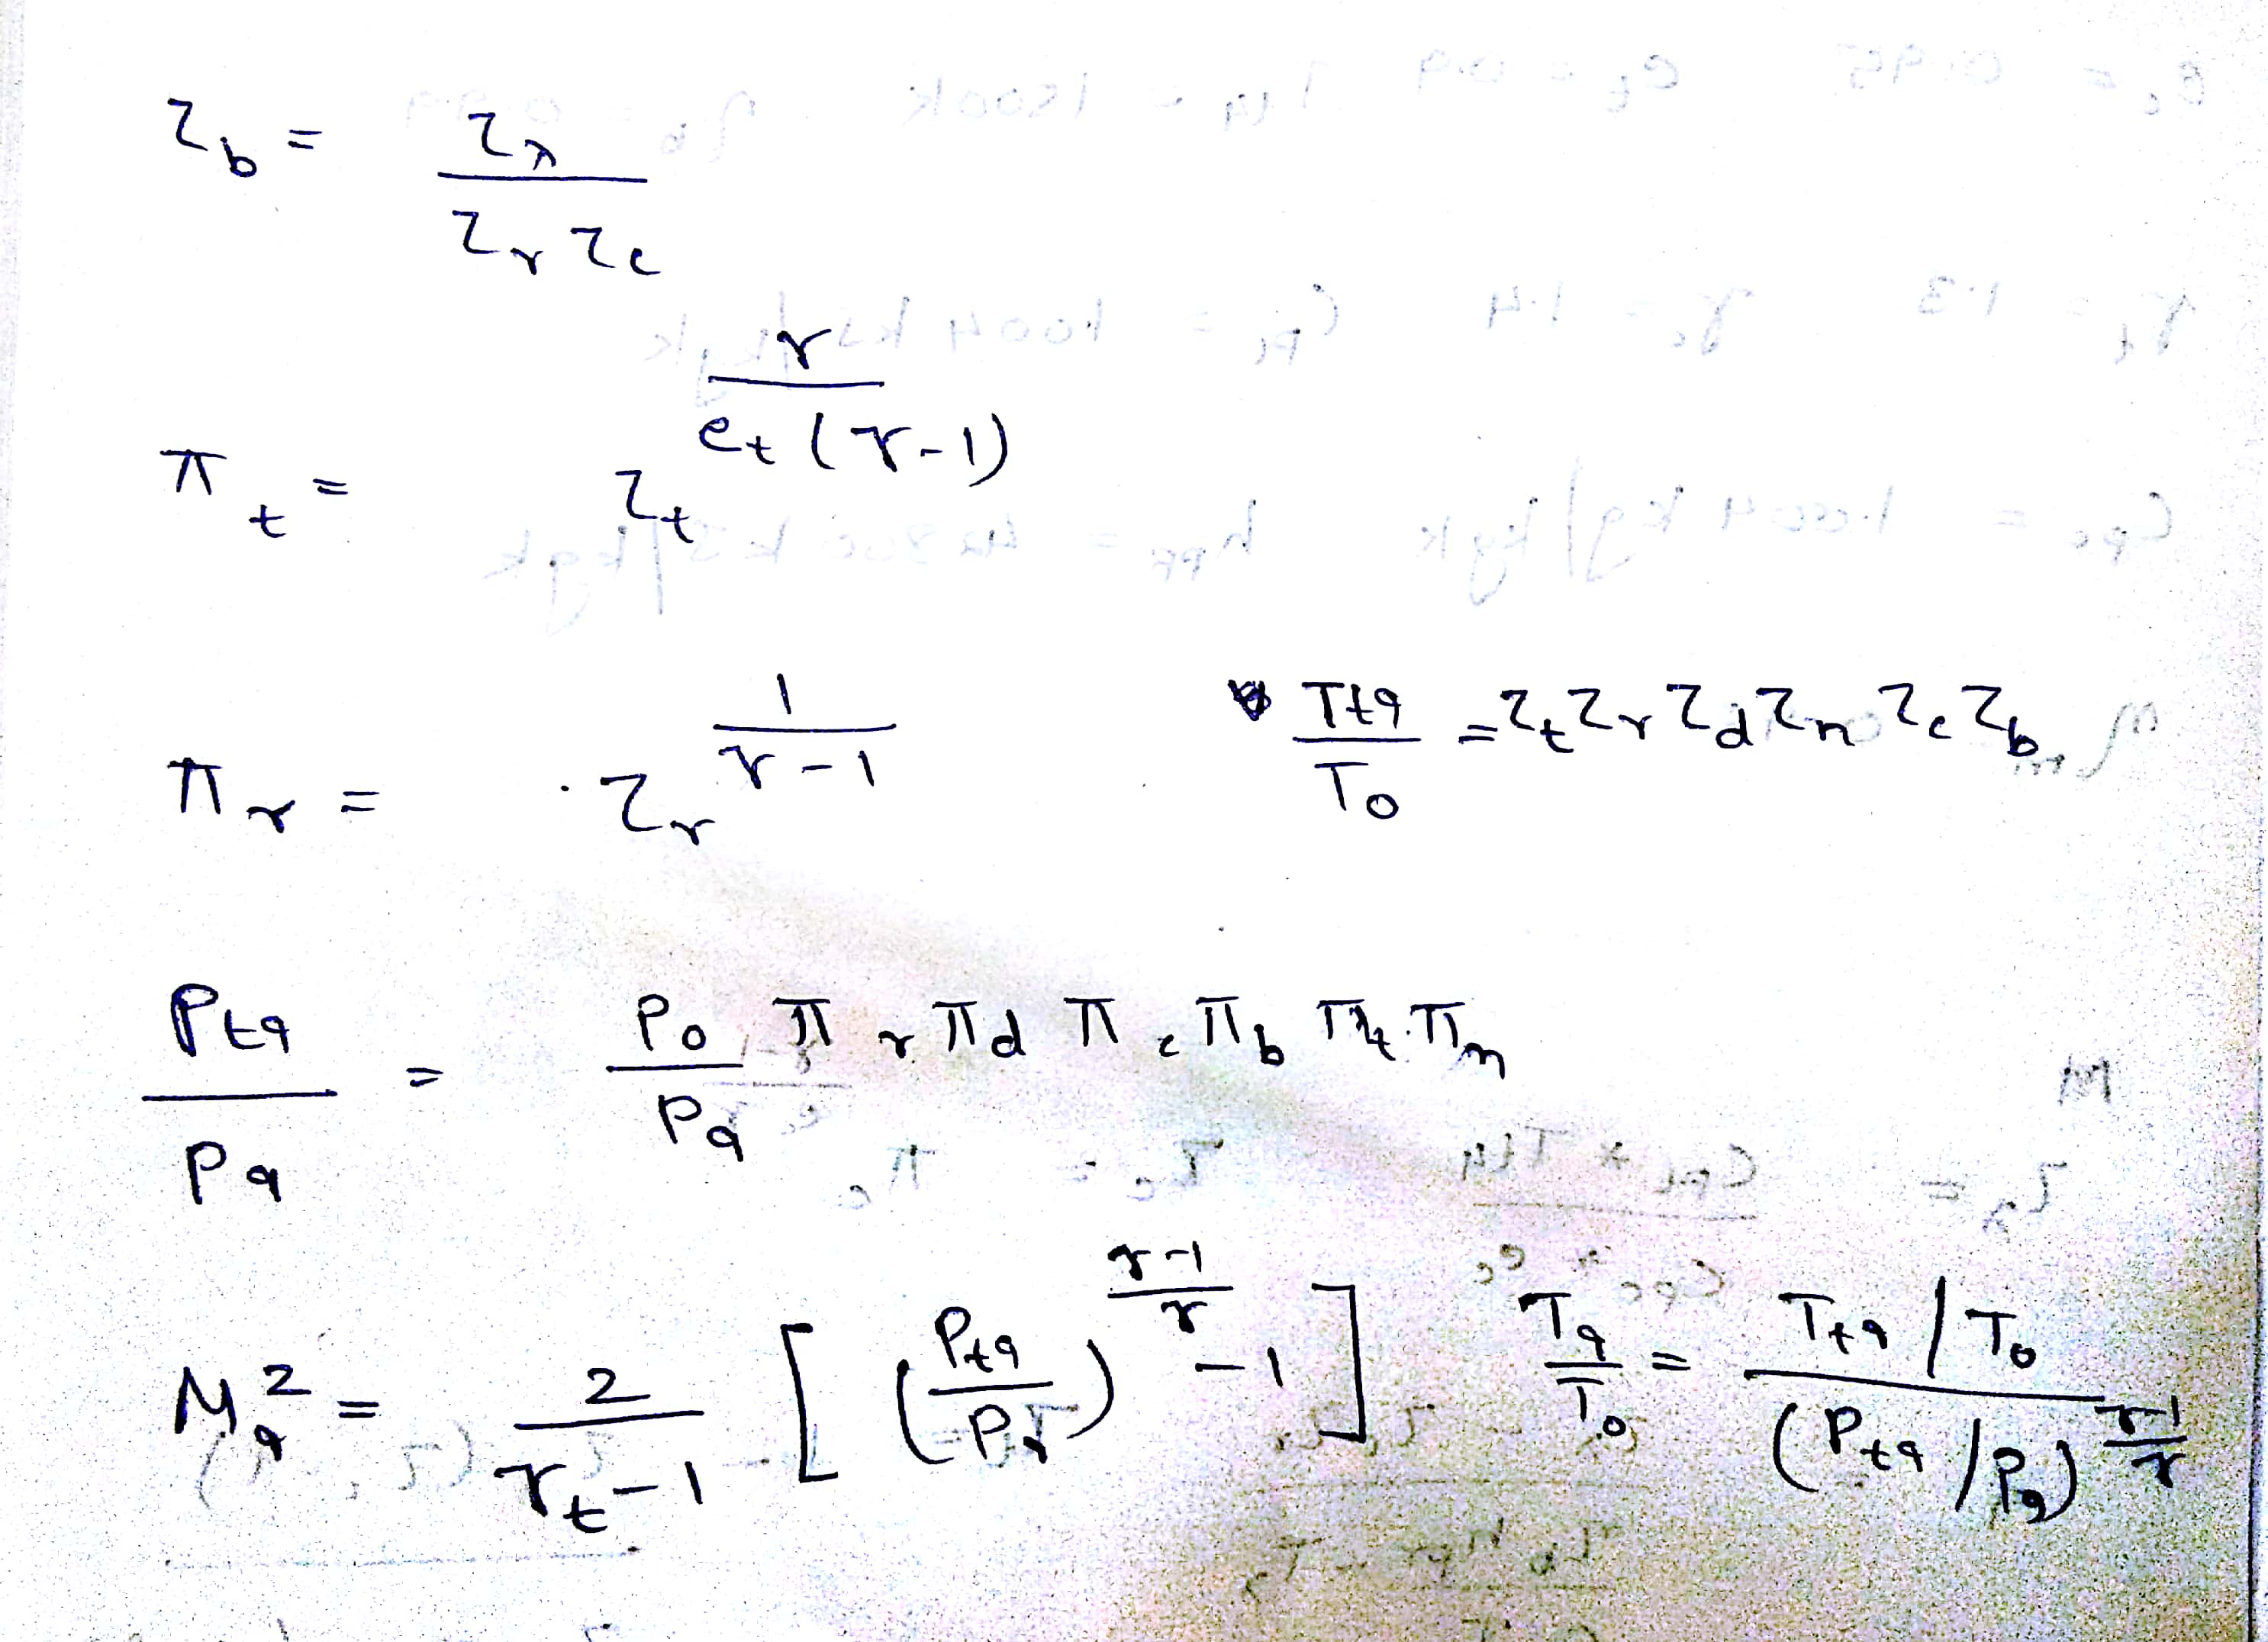 τ_b = τ_λ / (τ_r τ_c)
π_t = τ_t^(γ / (e_t (γ-1)))
π_r = τ_r^(1 / (γ-1))
T_t9 / T_0 = τ_t τ_r τ_d τ_n τ_c τ_b
P_t9 / P_9 = (P_0 / P_9) π_r π_d π_c π_b π_t · π_n
M_9^2 = 2 / (γ_t - 1) [ (P_t9 / P_9)^((γ-1) / γ) - 1 ]
T_9 / T_0 = (T_t9 / T_0) / (P_t9 / P_9)^((γ-1) / γ)